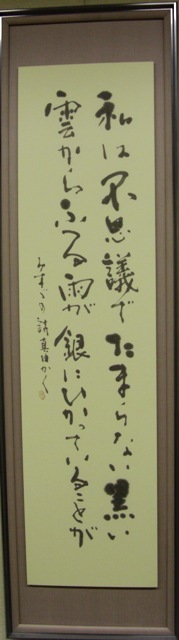 私は不思議でたまらない黒い
雲からふる雨が銀にひかっていることが
みすゞの詩真由かく